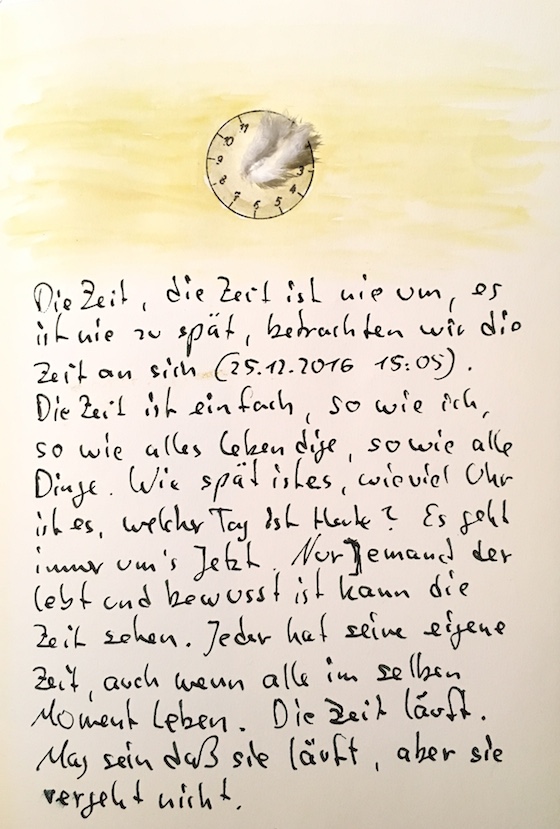 11
10
9
8
7
6
5
4
3
Die Zeit, die Zeit ist nie um, es
ist nie zu spät, betrachten wir die
Zeit an sich (25.12.2016 15:05).
Die Zeit ist einfach, so wie ich,
so wie alles lebendige, so wie alle
Dinge. Wie spät ist es, wieviel Uhr
ist es, welcher Tag ist Heute? Es geht
immer um's Jetzt. Nur Jemand der
lebt und bewusst ist kann die
Zeit sehen. Jeder hat seine eigene
Zeit, auch wenn alle im selben
Moment leben. Die Zeit läuft.
Mag sein daß sie läuft, aber sie
vergeht nicht.